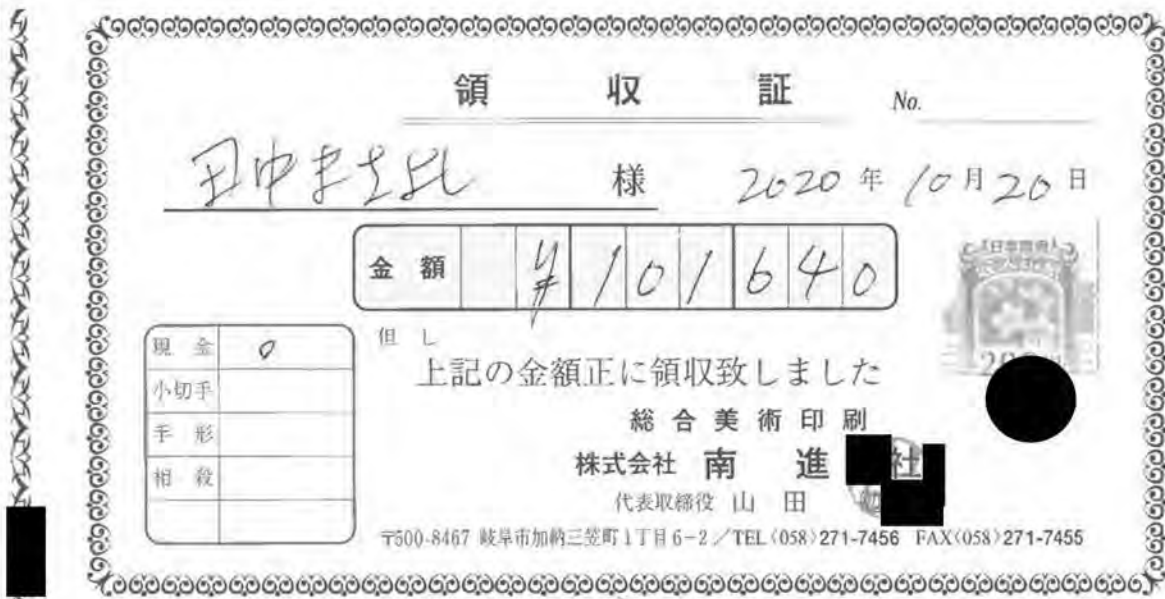 領収証 No.
田中まさよし 様 2020年10月20日
金額 ¥101640
現金 0
小切手
手形
相殺
但し
上記の金額正に領収致しました
総合美術印刷
株式会社 南進 社
代表取締役 山田
〒500-8467 岐阜市加納三笠町1丁目6-2/TEL(058)271-7456 FAX(058)271-7455